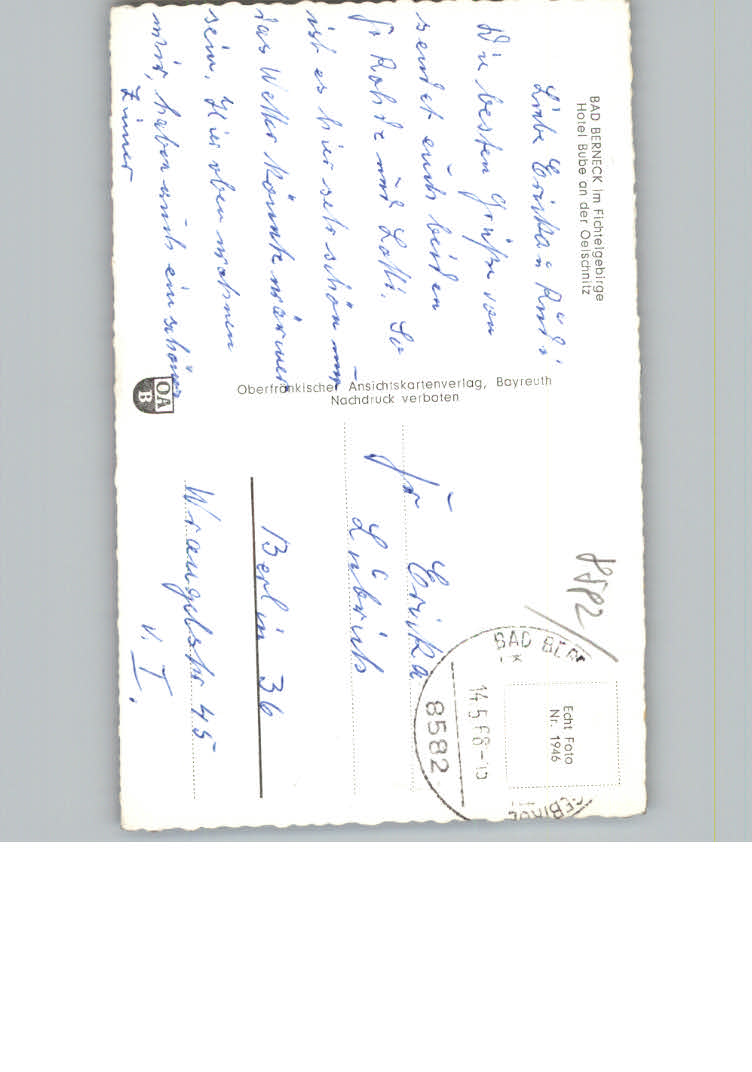 BAD BERNECK im Fichtelgebirge
Hotel Bube an der Oelschnitz
Liebe Erika u Rudi
Die besten Grüße von
sendet euch beiden
Fr Rohde und Lotti. So
ist es hier sehr schön nur
das Wetter könnte wärmer
sein. Hier oben wohnen
wir, haben auch ein schönes
Zimer
Oberfränkischer Ansichtskartenverlag, Bayreuth
Nachdruck verboten
OA
B
8582
BAD BER
14.5.68-
8582
GEBIRGE
Echt Foto
Nr. 1946
Fr Erika
Berlin 36
Wrangelstr 45
v. I.